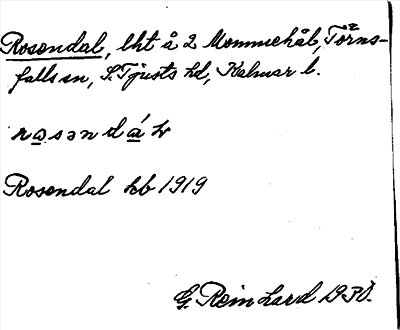 Rosendal, lht å 2 Mommehål, Törns-
falls sn, S. Tjusts hd, Kalmar l.
rosəndáḷ
Rosendal kb 1919
G. Reinhard 1930.